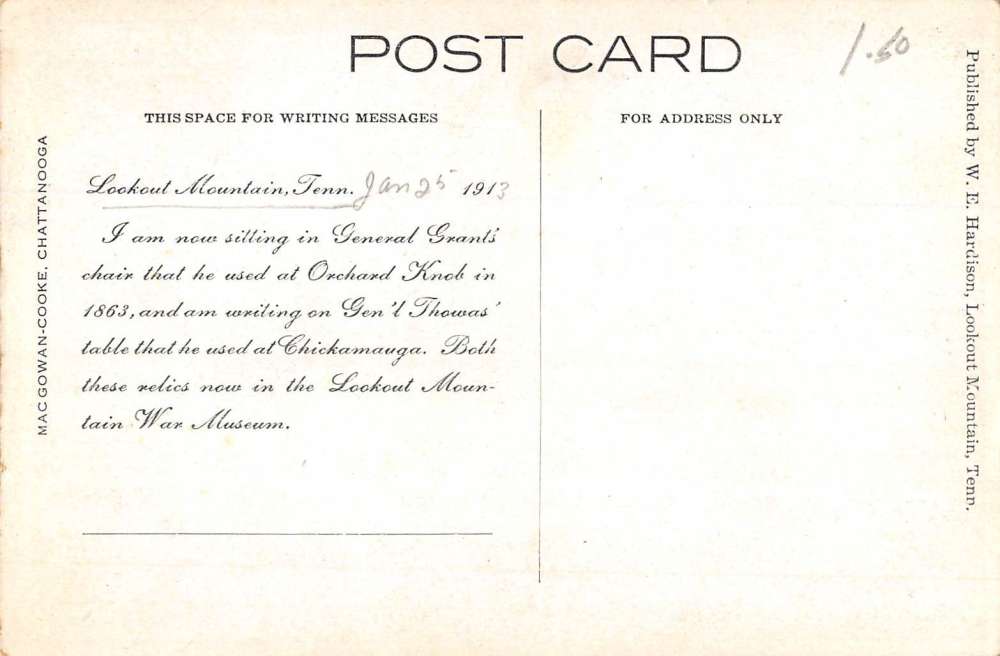 POST CARD
1.50
THIS SPACE FOR WRITING MESSAGES
FOR ADDRESS ONLY
Lookout Mountain, Tenn. Jan 25 1913
I am now sitting in General Grant's
chair that he used at Orchard Knob in
1863, and am writing on Gen'l Thomas'
table that he used at Chickamauga. Both
these relics now in the Lookout Moun-
tain War Museum.
MACGOWAN-COOKE, CHATTANOOGA
Published by W. E. Hardison, Lookout Mountain, Tenn.